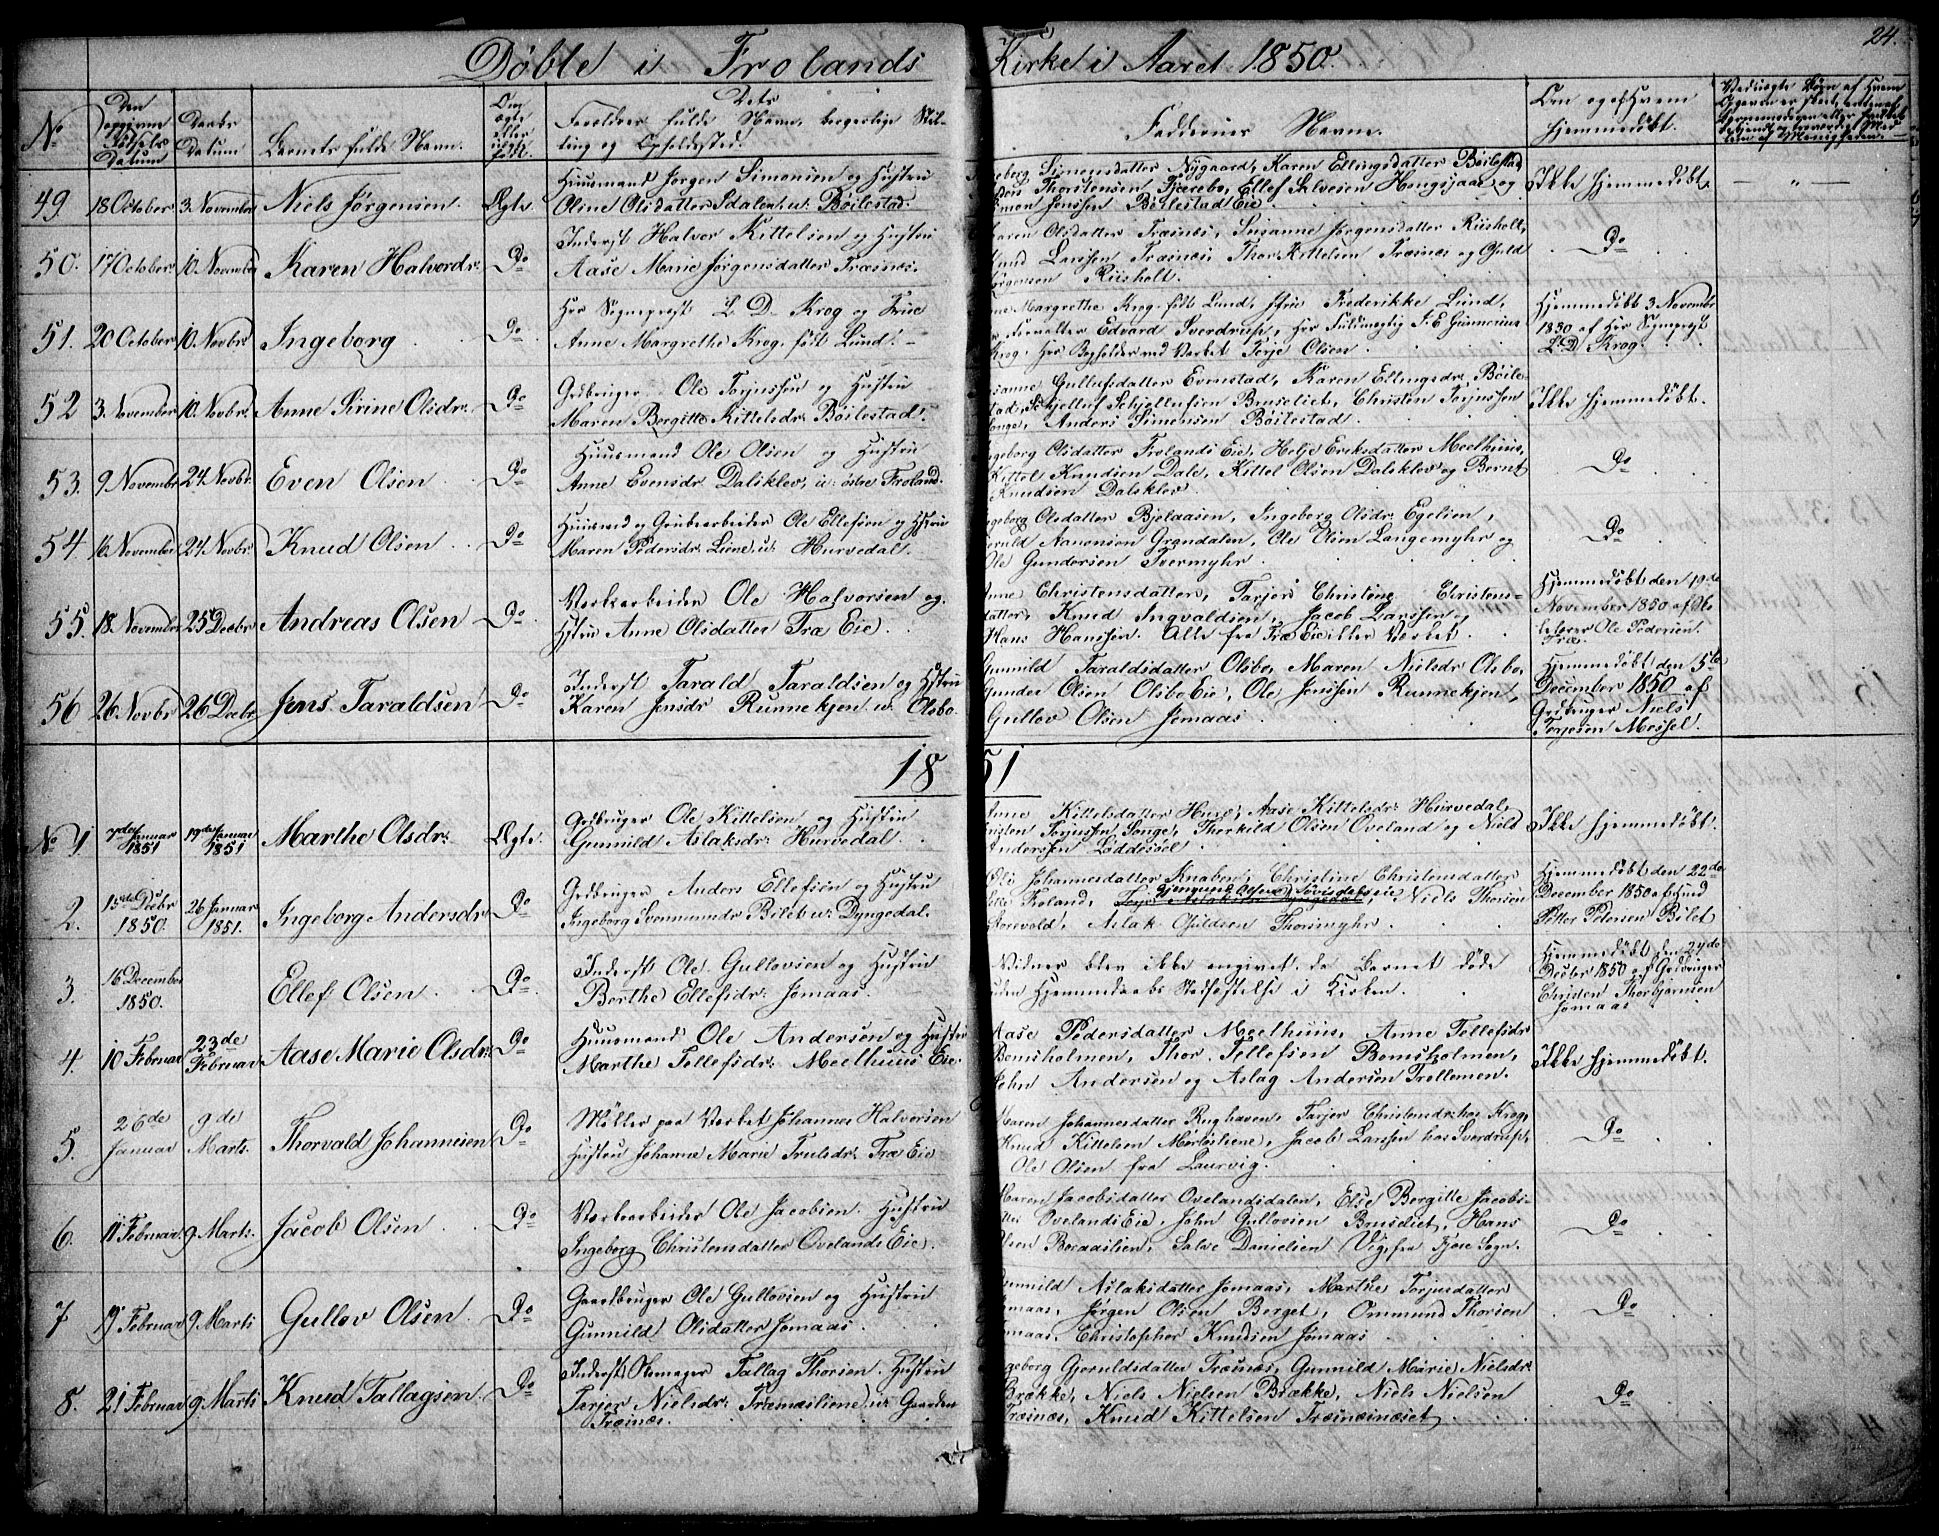 24.
Döbte i Frolands Kirke i Aaret 1850.
No
Den opgivne Födsels Datum
Daabs Datum
Barnets fulde Navn.
Om ægte eller uægte födt.
Dets Forældres fulde Navn, borgerlige Stilling og Opholdssted.
Faddernes Navne.
Om og af Hvem hjemmedöbt.
49 18 October 3 November Niels Jörgensen. Ægte.
Huusmand Jörgen Simonsen og Hustru
Oline Olsdatter Sdalen u. Böilestad.
Simensdatter Nygaard, Karen Ellingsdatter Böilestad,
Thorstensen Fjærebo, Ellef Salvesen Hongsjaae og
Simon Jenssen Böilestad Eie
Ikke hjemmedöbt. — " —
50. 17 October 10. November Karen Halvordr. Do
Inderst Halvor Kittelsen og Hustru
Aase Marie Jörgensdatter Træsnes.
Karen Olsdatter Træsnes, Susanne Jörgensdatter Riisholt,
Knud Larssen Træsnes Thor Kittelsen Træsnes og Guld
Jörgensen Riisholt.
Do
51. 20 October 10. Novbr Ingeborg Do
Hr Sogneprest L. D. Krog og Frue
Anne Margrethe Krog, födt Lund.
Margrethe Krog födt Lund, Frederikke Lund,
Forvalter Edvard Sverdrup, Hr Fuldmægtig J. E. Gunnerius
Krog, Hr Bogholder ved Værket Terje Olsen
Hjemmedöbt 3 Novembr
1850 af Hr Sognprest
L D Krog.
52 3. November 10. Novbr. Anne Sirine Olsdr. Do
Grdbruger Ole Torjussen og Hustru
Maren Bergitte Kittelsdr. Böilestad.
Gullufsdatter Evenstad, Karen Ellingsdr. Böile-
stad, Schjelluf Schjellufsen Bruseliet, Christen Torjussen
Songe, Anders Simonsen Böilestad.
Ikke hjemmedöbt.
53. 9 November 24 Novbr. Even Olsen Do
Huusmand Ole Olsen og Hustru
Anne Evensdr Dalsklev, u: östre Froland.
Ingeborg Olsdatter Frolands Eie, Helje Eriksdatter Meelhuus,
Kittel Knudsen Dale, Kittel Olsen Dalsklev og Bernt
Knudsen Dalsklev.
Do
54. 16 November 24 Novbr Knud Olsen Do
Huusmd og Grubearbeider Ole Ellefsen og Hstru
Maren Pedersdr. Liene u: Hurvedal.
Ingeborg Olsdatter Bjelaasen, Ingeborg Olsdr. Egelien,
Aanonsen Grændalen, Ole Olsen Langemyhr og
Ole Gundersen Tvermyhr.
Do
55. 18. November 25 Decbr. Andreas Olsen Do
Værksarbeider Ole Halvorsen og
Hstru Anne Olsdatter Træ Eie.
Anne Christensdatter, Tarjer Christine Christens-
datter, Knud Ingvaldsen, Jacob Larssen og
Hans Hanssen. Alle fra Træ Eie eller Værket.
Hjemmedöbt den 19de
November 1850 af Sko-
lelærer Ole Pedersen
Træ.
56 26 Novbr 26 Decbr. Jens Taraldsen Do
Inderst Tarald Taraldsen og Hstru
Karen Jensdr Runnekjen u: Olsbo.
Gunnild Taraldsdatter Olsbo, Maren Nielsdr Olsbo,
Gunder Olsen Olsbo Eie, Ole Jenssen Runnekjen,
Gullov Olsen Jomaas.
Hjemmedöbt den 5te
December 1850 af
Grdbruger Niels
Torjesen Messel.
1851
No 1 7de Januar 1851 19de Januar 1851 Marthe Olsdr: Ægte.
Grdbruger Ole Kittelsen og Hustru
Gunnild Aslaksdr: Hurvedal.
Anne Kittelsdatter Heuse, Aase Kittelsdr: Hurvedal,
Christen Torjussen Songe, Thorkild Olsen Oveland og Niels
Anderssen Löddesöel.
Ikke hjemmedöbt.
2. 15de Decbr 1850. 26 Januar 1851. Ingeborg Andersdr Do
Grdbruger Anders Ellefsen og Hustru
Ingeborg Svenmundr. Bölet u: Dyngedal.
Johannesdatter Knaben, Christine Christensdatter
Froland, Niels Thorsen
Aslak Gjuldsen Thorsmyhr.
Hjemmedöbt den 22de
December 1850 af Gmd
Petter Pedersen Bölet
3. 16 December 1850. Ellef Olsen. Do
Inderst Ole Gullovsen og Hustru
Berthe Ellefsdr: Jomaas.
Vidner blev ikke angivet, da Barnet döde
uden Hjemmedaabs Stadfæstelse i Kirken.
Hjemmedöbt den 27de
Decbr 1850 af Grdbruger
Christen Thorbjörnsen
Jomaas
4. 10 Februar 23de Februar Aase Marie Olsdr: Do
Huusmand Ole Andersen og Hustru
Marthe Tellefsdr: Meelhuus Eie
Aase Pedersdatter Meelhuus, Anne Tellefsdr
Bomsholmen, Thor Tellefsen Bomsholmen,
John Andersen og Aslag Andersen Trellemen.
Ikke hjemmedöbt.
5. 26de Januar 9de Marts. Thorvald Johannesen Do
Möller paa Værket Johannes Halvorsen
Hustru Johanne Marie Trulsdr. Træ Eie
Maren Johannesdatter Rughaven, Tarjer Christensdr: hos Krog,
Knud Kittelsen Mörlösliene, Jacob Larssen hos Sverdrup,
Ole Olsen fra Laurvig.
Do
6. 11 Februar 9. Marts. Jacob Olsen Do
Værksarbeider Ole Jacobsen. Hustru
Ingeborg Christensdatter Ovelands Eie.
Maren Jacobsdatter Ovelandsdalen, Else Bergitte Jacobs-
datter Ovelands Eie, John Gullovsen Bruseliet, Hans
Olsen Boraaslien, Salve Danielsen Vige fra Fjære Sogn.
Do
7 19 Februar 9 Marts Gullov Olsen. Do
Gaardbruger Ole Gullovsen og Hustru
Gunnild Olsdatter Jomaas.
Gunnild Aslaksdatter Jomaas, Marthe Torjusdatter
Jomaas, Jörgen Olsen Berget, Ommund Thorsen
Jomaas, Christopher Knudsen Jomaas
Do
8. 21 Februar 9. Marts Knud Tallagsen Do
Inderst Skomager Tallag Thorsen. Hustru
Terjer Nielsdr: Træmæsliene, u: Gaarden
Træsnæs.
Ingeborg Gjeruldsdatter Træsnæs, Gunnild Marie Nielsdr.
Brække, Niels Nielsen Brække, Niels Nielsen
Træsnæs, Knud Kittelsen Træsnæsnæset
Do